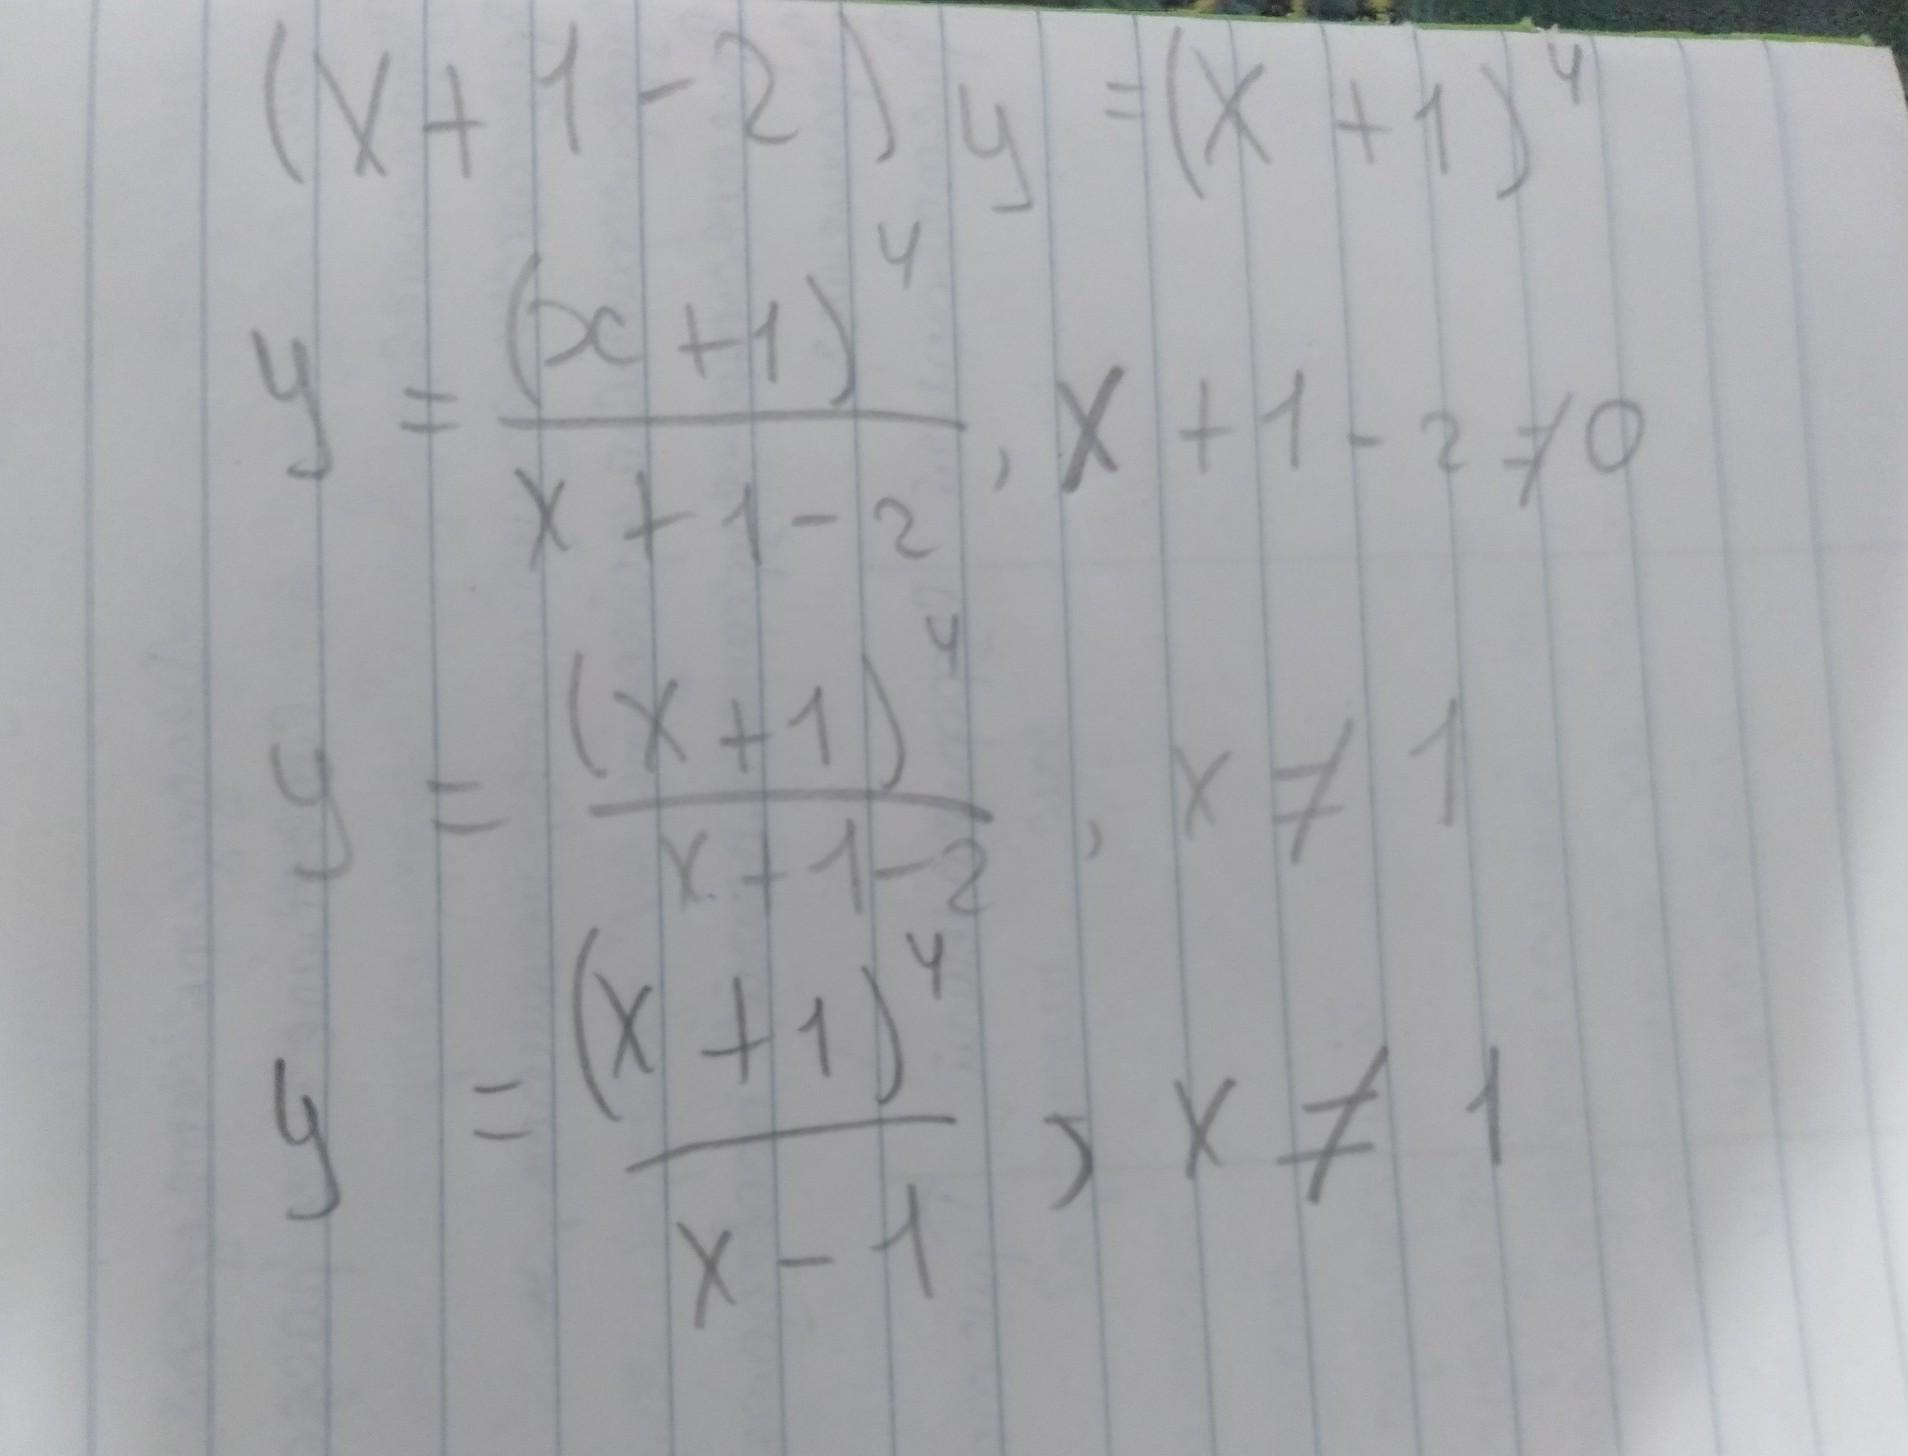 (x+1-2)y=(x+1)⁴
y = (x+1)⁴/(x+1-2), x+1-2≠0
y = (x+1)⁴/(x+1-2), x≠1
y = (x+1)⁴/(x-1), x≠1